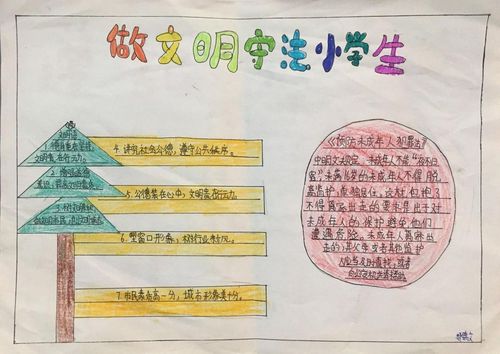 做文明守法小学生
文明语
1.
文明贵在行动。
2.
3.
4.讲究社会公德，遵守公共秩序。
5.公德装在心中，文明贵在行动。
6.塑窗口形象，树行业新风。
7.市民素质高一分，城市形象美十分。
《预防未成年人犯罪法》
中明文规定，未成年人不能"夜不归
宿"未满16岁的未成年人不得脱
离监护，单独居住。这就包括了
不得离家出走的要求是出于对
未成年人的保护避免他们
遭遇危险。未成年人离家出
走的，其父母或者其他监护
人应当及时查找，或者
向公安机关请求